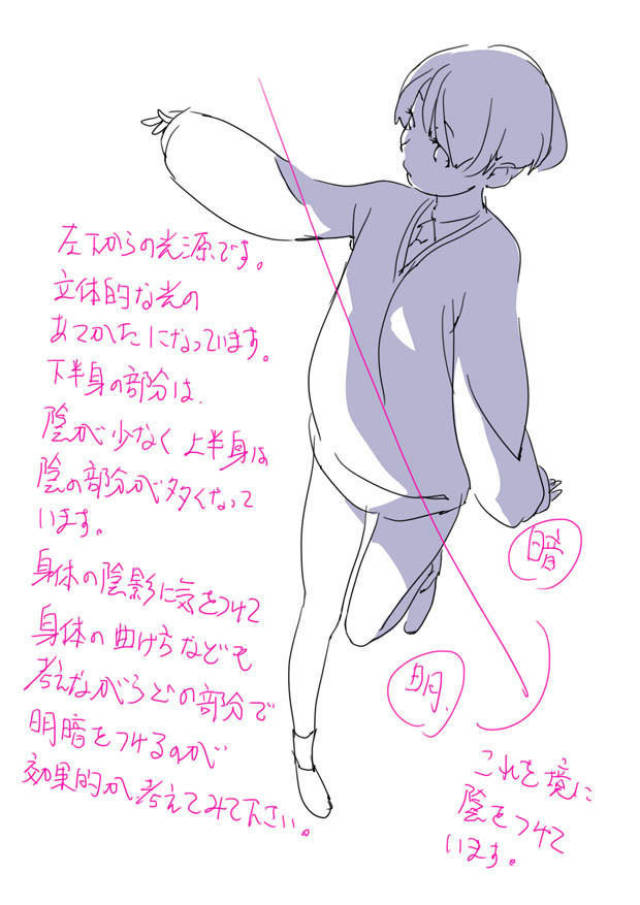 左下からの光源です。
立体的な光の
あてかたになっています。
下半身の部分は、
陰が少なく上半身は
陰の部分が多くなって
います。
身体の陰影に気をつけて
身体の曲げ方なども
考えながらどの部分で
明暗をつけるのが
効果的か考えてみて下さい。
暗
明
これを境に
陰をつけて
います。